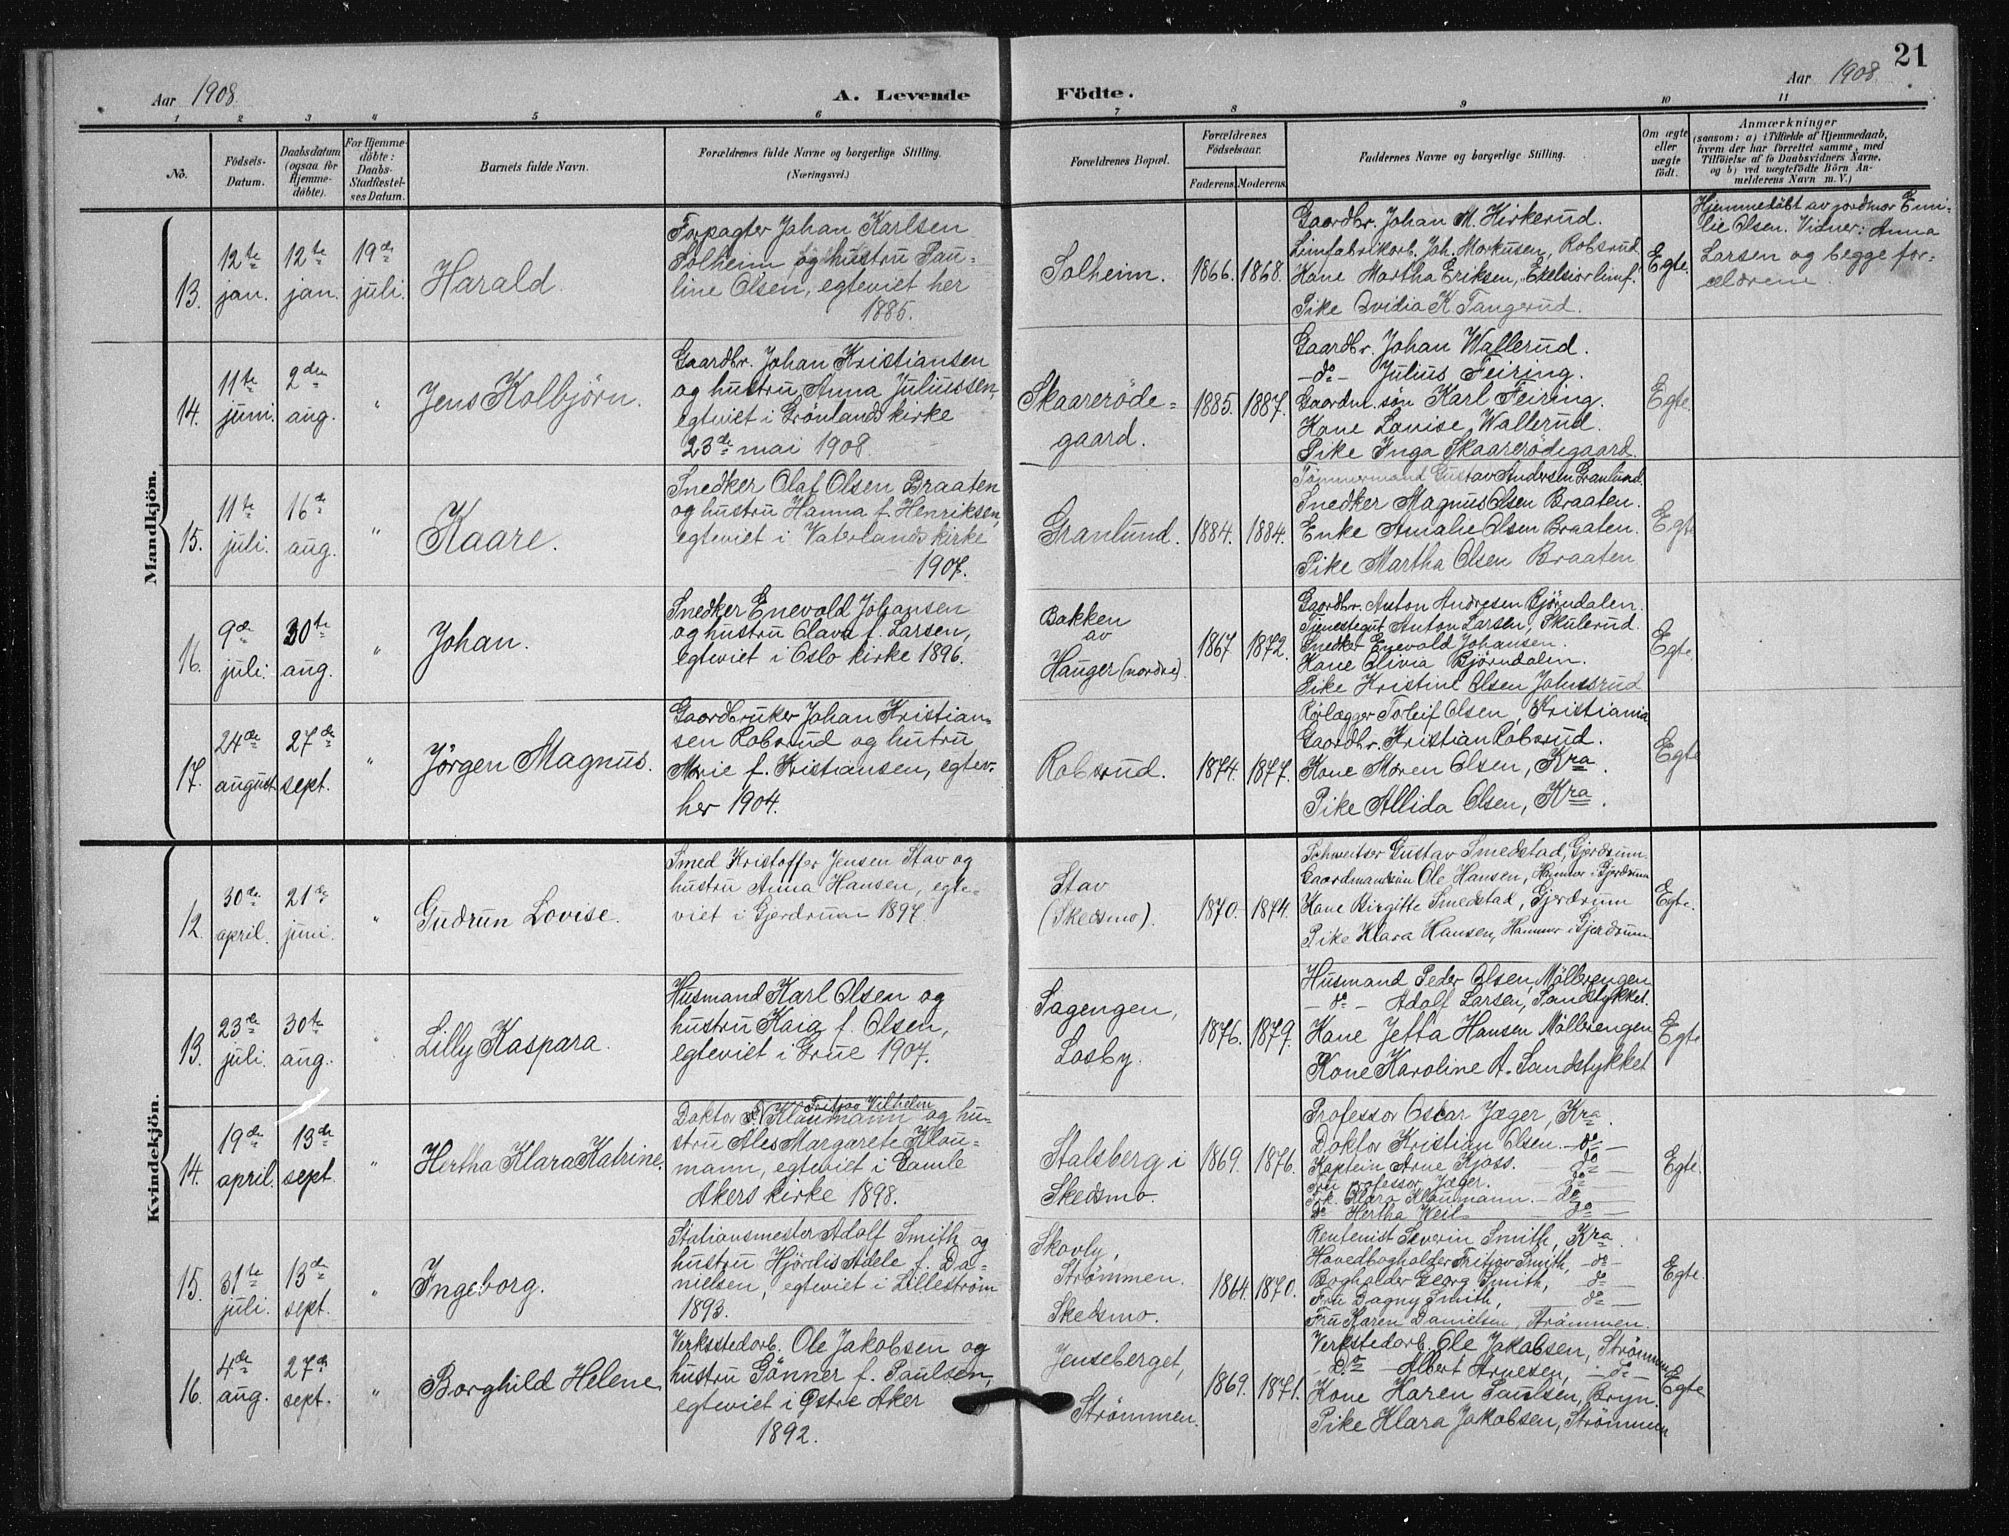 21
Aar 1908.
A. Levende
Födte.
Aar 1908.
1 2 3 4 5 6 7 8 9 10 11
No.
Födsels-
Datum.
Daabsdatum
(ogsaa för
Hjemme-
döbte).
For Hjemme-
döbte:
Daabs-
Stadfæstel-
ses Datum.
Barnets fulde Navn.
Forældrenes fulde Navne og borgerlige Stilling.
(Næringsvei.)
Forældrenes Bopæl.
Forældrenes
Födselsaar.
Faderens. Moderens.
Faddernes Navne og borgerlige Stilling.
Om ægte
eller
uægte
födt.
Anmærkninger
(saasom: a) i Tilfælde af Hjemmedaab,
hvem der har forrettet samme, med
Tilföielse af to Daabsvidners Navne.
og b) ved uægtefödte Börn An-
melderens Navn m. V.)
Mandkjön.
13.
12te
jan.
12te
jan.
19de
juli.
Harald.
Forpagter Johan Karlsen
Solheim og hustru Pau-
line Olsen, egteviet her
1885.
Solheim.
1866. 1868.
Gaardbr. Johan M. Kirkerud.
Limfabrikarb. Joh. Markusen, Robsrud
Kone Martha Eriksen, Exelsiorlimf.
Pike Ovidia K. Tangerud.
Egte.
Hjemmedöbt av jordmor Emi-
lie Olsen. Vidner: Anna
Larsen og begge for-
ældrene.
14.
11te
juni.
2den
aug.
"
Jens Kolbjörn.
Gaardbr. Johan Kristiansen
og hustru Anna Juliussen,
egteviet i Grönlands kirke
23de mai 1908.
Skaareröde=
gaard.
1885. 1887.
Gaardbr. Johan Wallerud.
-do- Julius Feiring.
Gaardm. sön Karl Feiring.
Kone Louise Wallerud.
Pike Inga Skaarerödegaard.
Egte.
15.
11te
juli.
16de
aug.
"
Kaare.
Snedker Olaf Olsen Braaten
og hustru Hanna f. Henriksen,
egteviet i Vaterlands kirke
1907.
Granlund.
1884. 1884.
Tömmermand Gustav Andersen Granlund.
Snedker Magnus Olsen Braaten.
Enke Amalie Olsen Braaten.
Pike Martha Olsen Braaten.
Egte
16.
9de
juli.
30te
aug.
"
Johan.
Snedker Enevold Johansen
og hustru Olava f. Larsen,
egteviet i Oslo kirke 1896.
Bakken
av
Hauger (nordre).
1867 1872.
Gaardbr. Anton Andresen Björndalen.
Tjenestegut Anton Larsen, Skulerud.
Snedker Enevald Johansen.
Kone Olivia Björndalen.
Pike Kristine Olsen Johnsrud
Egte.
17.
24de
august
27de
sept.
"
Jörgen Magnus.
Gaardbruker Johan Kristian-
sen Robsrud og hutru
Marie f. Kristiansen, egtev.
her 1904.
Robsrud.
1874. 1877.
Rörlægger Torleif Olsen, Kristiania
Gaardbr. Kristian Robsrud.
Kone Maren Olsen, Kra.
Pike Allida Olsen, Kra.
Egte
Kvindekjön.
12.
30de
april.
21de
juni.
"
Gudrun Lovise.
Smed Kristoffer Jensen Stav og
hustru Anna Hansen, egte-
viet i Gjerdrum 1897.
Stav
(Skedsmo).
1870. 1874.
Schweitser Gustav Smedstad, Gjerdrum.
Gaardmandsön Ole Hansen, Hammer i Gjerdrum
Kone Birgitte Smedstad, Gjerdrum
Pike Klara Hansen, Hammer i Gjerdrum.
Egte.
13.
23de
juli.
30te
aug.
"
Lilly Kaspara.
Husmand Karl Olsen og
hustru Kaia f. Olsen,
egteviet i Grue 1907.
Sagengen,
Losby.
1876. 1879.
Husmand Peder Olsen, Mölbrengen
-do- Adolf Larsen, Sandstykket.
Kone Jetta Hansen Mölbrengen
Kone Karoline A. Sandstykket
Egte
14.
19de
april.
13de
sept.
"
Hertha Klara Katrine.
Fritjov Vilhelm
Doktor Klaumann og hu-
stru Ales Margarete Klau-
mann, egteviet i Gamle
Akers kirke 1898.
Stalsberg i
Skedsmo.
1869. 1876.
Professor Oscar Jæger, Kra.
Doktor Kristian Olsen. -do-
Kaptein Arne Kjoss. -do-
Fru professor Jæger. -do-
Frk. Clara Klaumann. -do-
Do Hertha Weil -do-
Egte.
15.
31te
juli.
13de
sept.
"
Ingeborg.
Stationsmester Adolf Smith og
hustru Hjördis Adele f. Da-
nielsen, egteviet i Lilleström
1893.
Skovly,
Strömmen.
Skedsmo.
1864. 1870.
Rentenist Severin Smith, Kra.
Hovedbogholder Fritjov Smith, -do-
Bogholder Georg Smith, -do-
Fru Dagny Smith, -do-
Fru Karen Danielsen, Strömmen.
Egte.
16.
4de
aug.
27de
sept.
"
Borghild Helene.
Verksstedarb. Ole Jakobsen og
hustru Gönner f. Paulsen,
egteviet i Østre Aker
1892.
Jenseberget,
Strömmen.
1869. 1871.
Verkstedarb. Ole Jakobsen, Strömmen
Do Albert Arnesen, -do-
Kone Karen Paulsen, Bryn.
Pike Klara Jakobsen, Strömmen
Egte